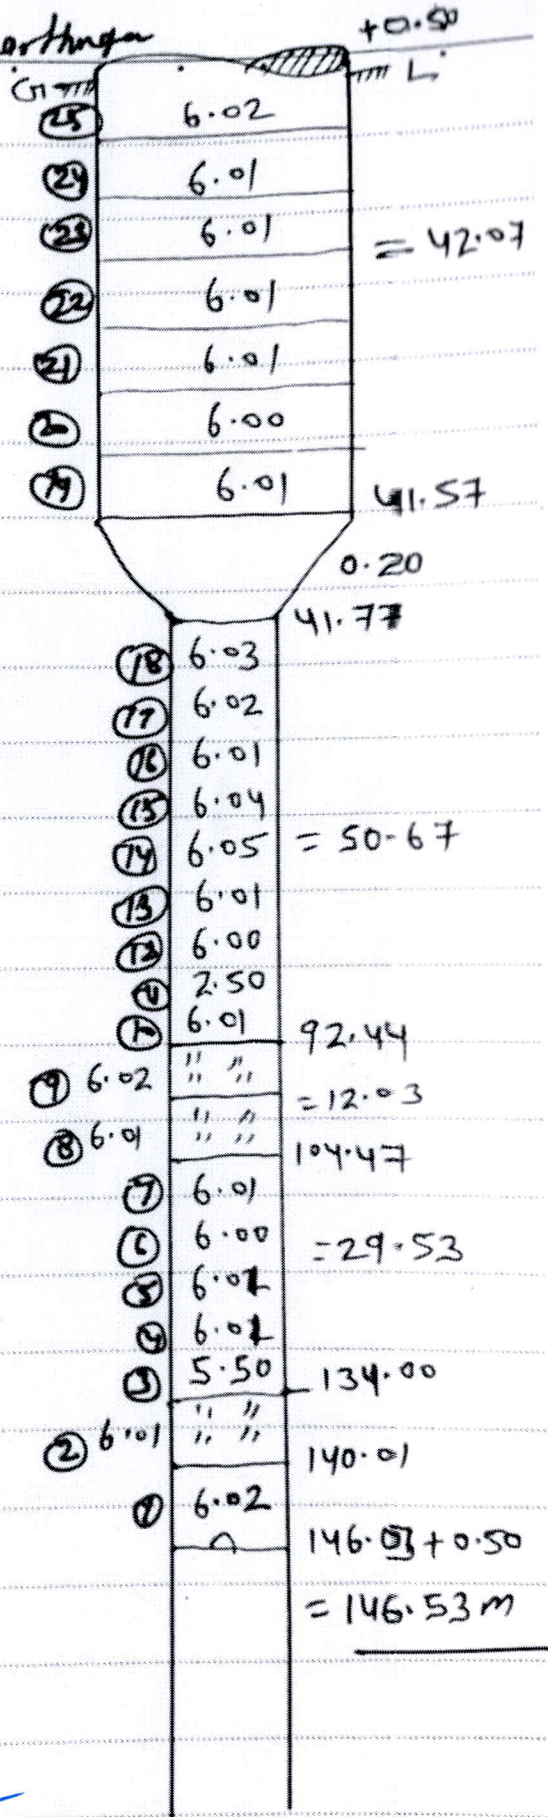 +0.50
G L
25 6.02
24 6.01
23 6.01 = 42.07
22 6.01
21 6.01
20 6.00
19 6.01 41.57
0.20
41.77
18 6.03
17 6.02
16 6.01
15 6.04
14 6.05 = 50.67
13 6.01
12 6.00
11 2.50
10 6.01
92.44
9 6.02 " "
= 12.03
8 6.01 " "
104.47
7 6.01
6 6.00 = 29.53
5 6.01
4 6.01
3 5.50 134.00
2 6.01 " "
140.01
1 6.02
146.03 + 0.50
= 146.53 m